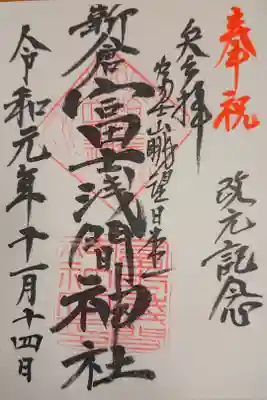 奉祝
改元記念
奉拝
富士山眺望日本一
新倉富士浅間神社
令和元年十一月十四日